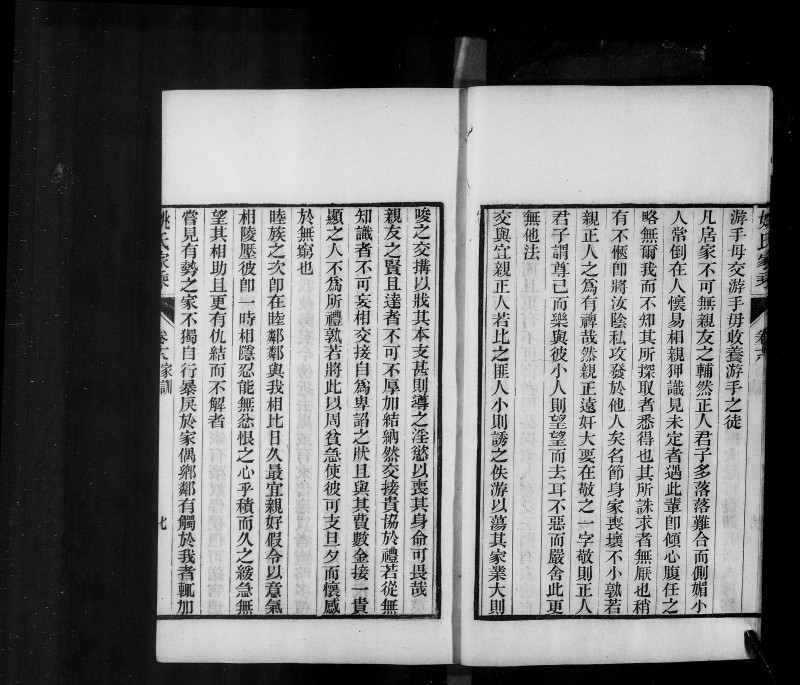 姚氏家乘
卷十六
游手毋交游手毋收養游手之徒
凡居家不可無親友之輔然正人君子多落落難合而側媚小
人常倒在人懷易相親狎識見未定者遇此輩卽傾心腹任之
略無爾我而不知其所探取者悉得也其所誅求者無厭也稍
有不愜卽將汝陰私攻發於他人矣名節身家喪壞不小孰若
親正人之爲有裨哉然親正遠奸大要在敬之一字敬則正人
君子謂尊己而樂與彼小人則望望而去耳不惡而嚴舍此更
無他法
交與宜親正人若比之匪人小則誘之佚游以蕩其家業大則
唆之交搆以戕其本支甚則導之淫慾以喪其身命可畏哉
親友之賢且達者不可不厚加結納然交接貴協於禮若從無
知識者不可妄相交接自爲卑諂之狀且與其費數金接一貴
顯之人不爲所禮孰若將此以周貧急使彼可支旦夕而懷感
於無窮也
睦族之次卽在睦鄰鄰與我相比日久最宜親好假令以意氣
相陵壓彼卽一時相隱忍能無忿恨之心乎積而久之緩急無
望其相助且更有仇結而不解者
嘗見有勢之家不獨自行暴戾於家偶鄉鄰有觸於我者輒加
姚氏家乘
卷十六家訓